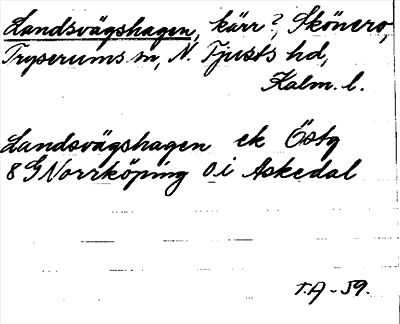 Landsvägshagen, kärr?, Skönero,
Tryserums sn, N. Tjusts hd,
Kalm. l.
Landsvägshagen ek Östg
8 G Norrköping O i Askedal
T.A - 59.